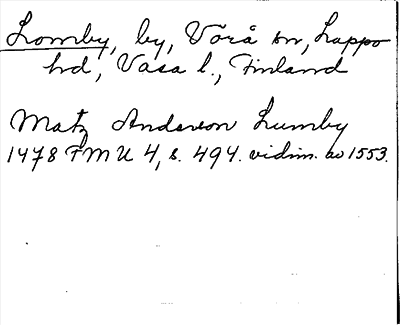 Lomby, by, Vörå sn, Lappo
hd, Vasa l., Finland
Matz Anderson Lumby
1478 FMU 4, s. 494. vidim. av 1553.